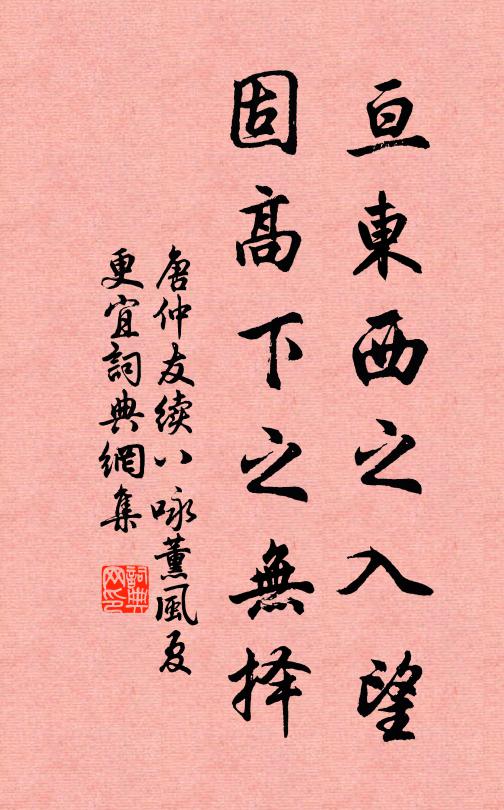 亘東西之入望
固高下之無择
唐仲友續八咏薰風夏
更宜詞典網集
詞典网印